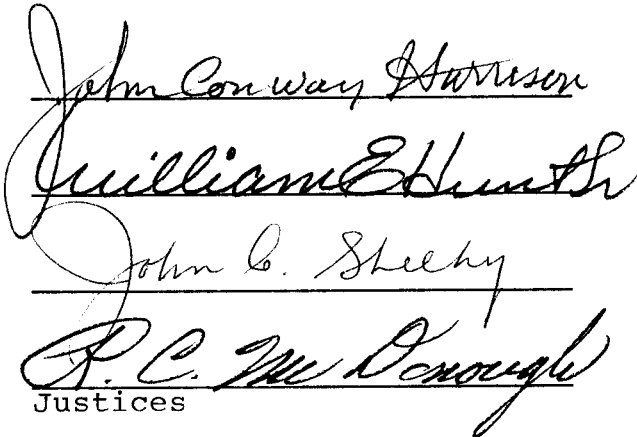 John Conway Harrison
William E Hunt Sr
John C. Sheehy
R. C. McDonough
Justices